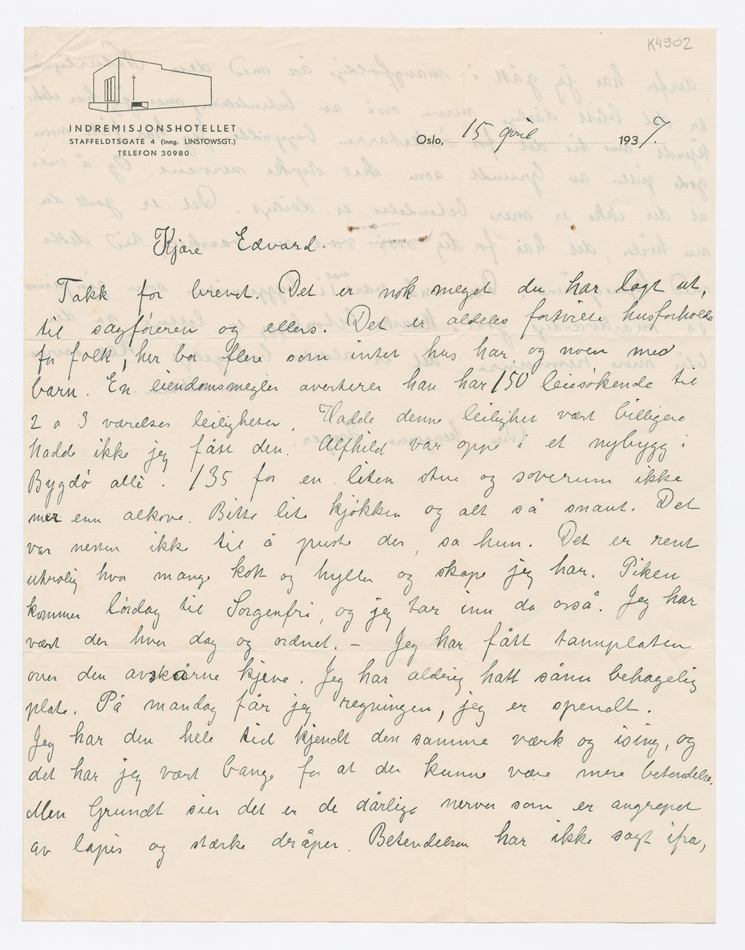 K4902
INDREMISJONSHOTELLET
STAFFELDTSGATE 4 (Inng. LINSTOWSGT.)
TELEFON 30980
Oslo, 15 april 1937.
Kjære Edvard.
Takk for brevet. Det er nok meget du har lagt ut,
til sagføreren og ellers. Det er aldeles fortvilete husforhold
for folk, her bor flere som intet hus har, og noen med
barn. En eiendomsmegler averterer han har 150 leiesøkende til
2 a 3 værelses leiligheter. Hadde denne leilighet vært billigere
hadde ikke jeg fått den. Alfhild var oppe i et nybygg i
Bygdø allè. 135 for en liten stue og soverum ikke
mer enn alkove. Bitte lite kjøkken og alt så snaut. Det
var nesten ikke til å puste der, sa hun. Det er rent
utrolig hva mange kott og hyller og skape jeg har. Piken
kommer lørdag til Sorgenfri, og jeg tar inn da også. Jeg har
vært der hver dag og ordnet. – Jeg har fått tannplaten
over den avskårne kjeve. Jeg har aldrig hatt sånn behagelig
plate. På mandag får jeg regningen, jeg er spendt.
Jeg har den hele tid kjendt den samme værk og ising, og
det har jeg vært bange for at der kunne være mere betendelse.
Men Grundt sier det er de dårlige nerver som er angrepet
av lapis og stærke dråper. Betendelsen har ikke sagt ifra,